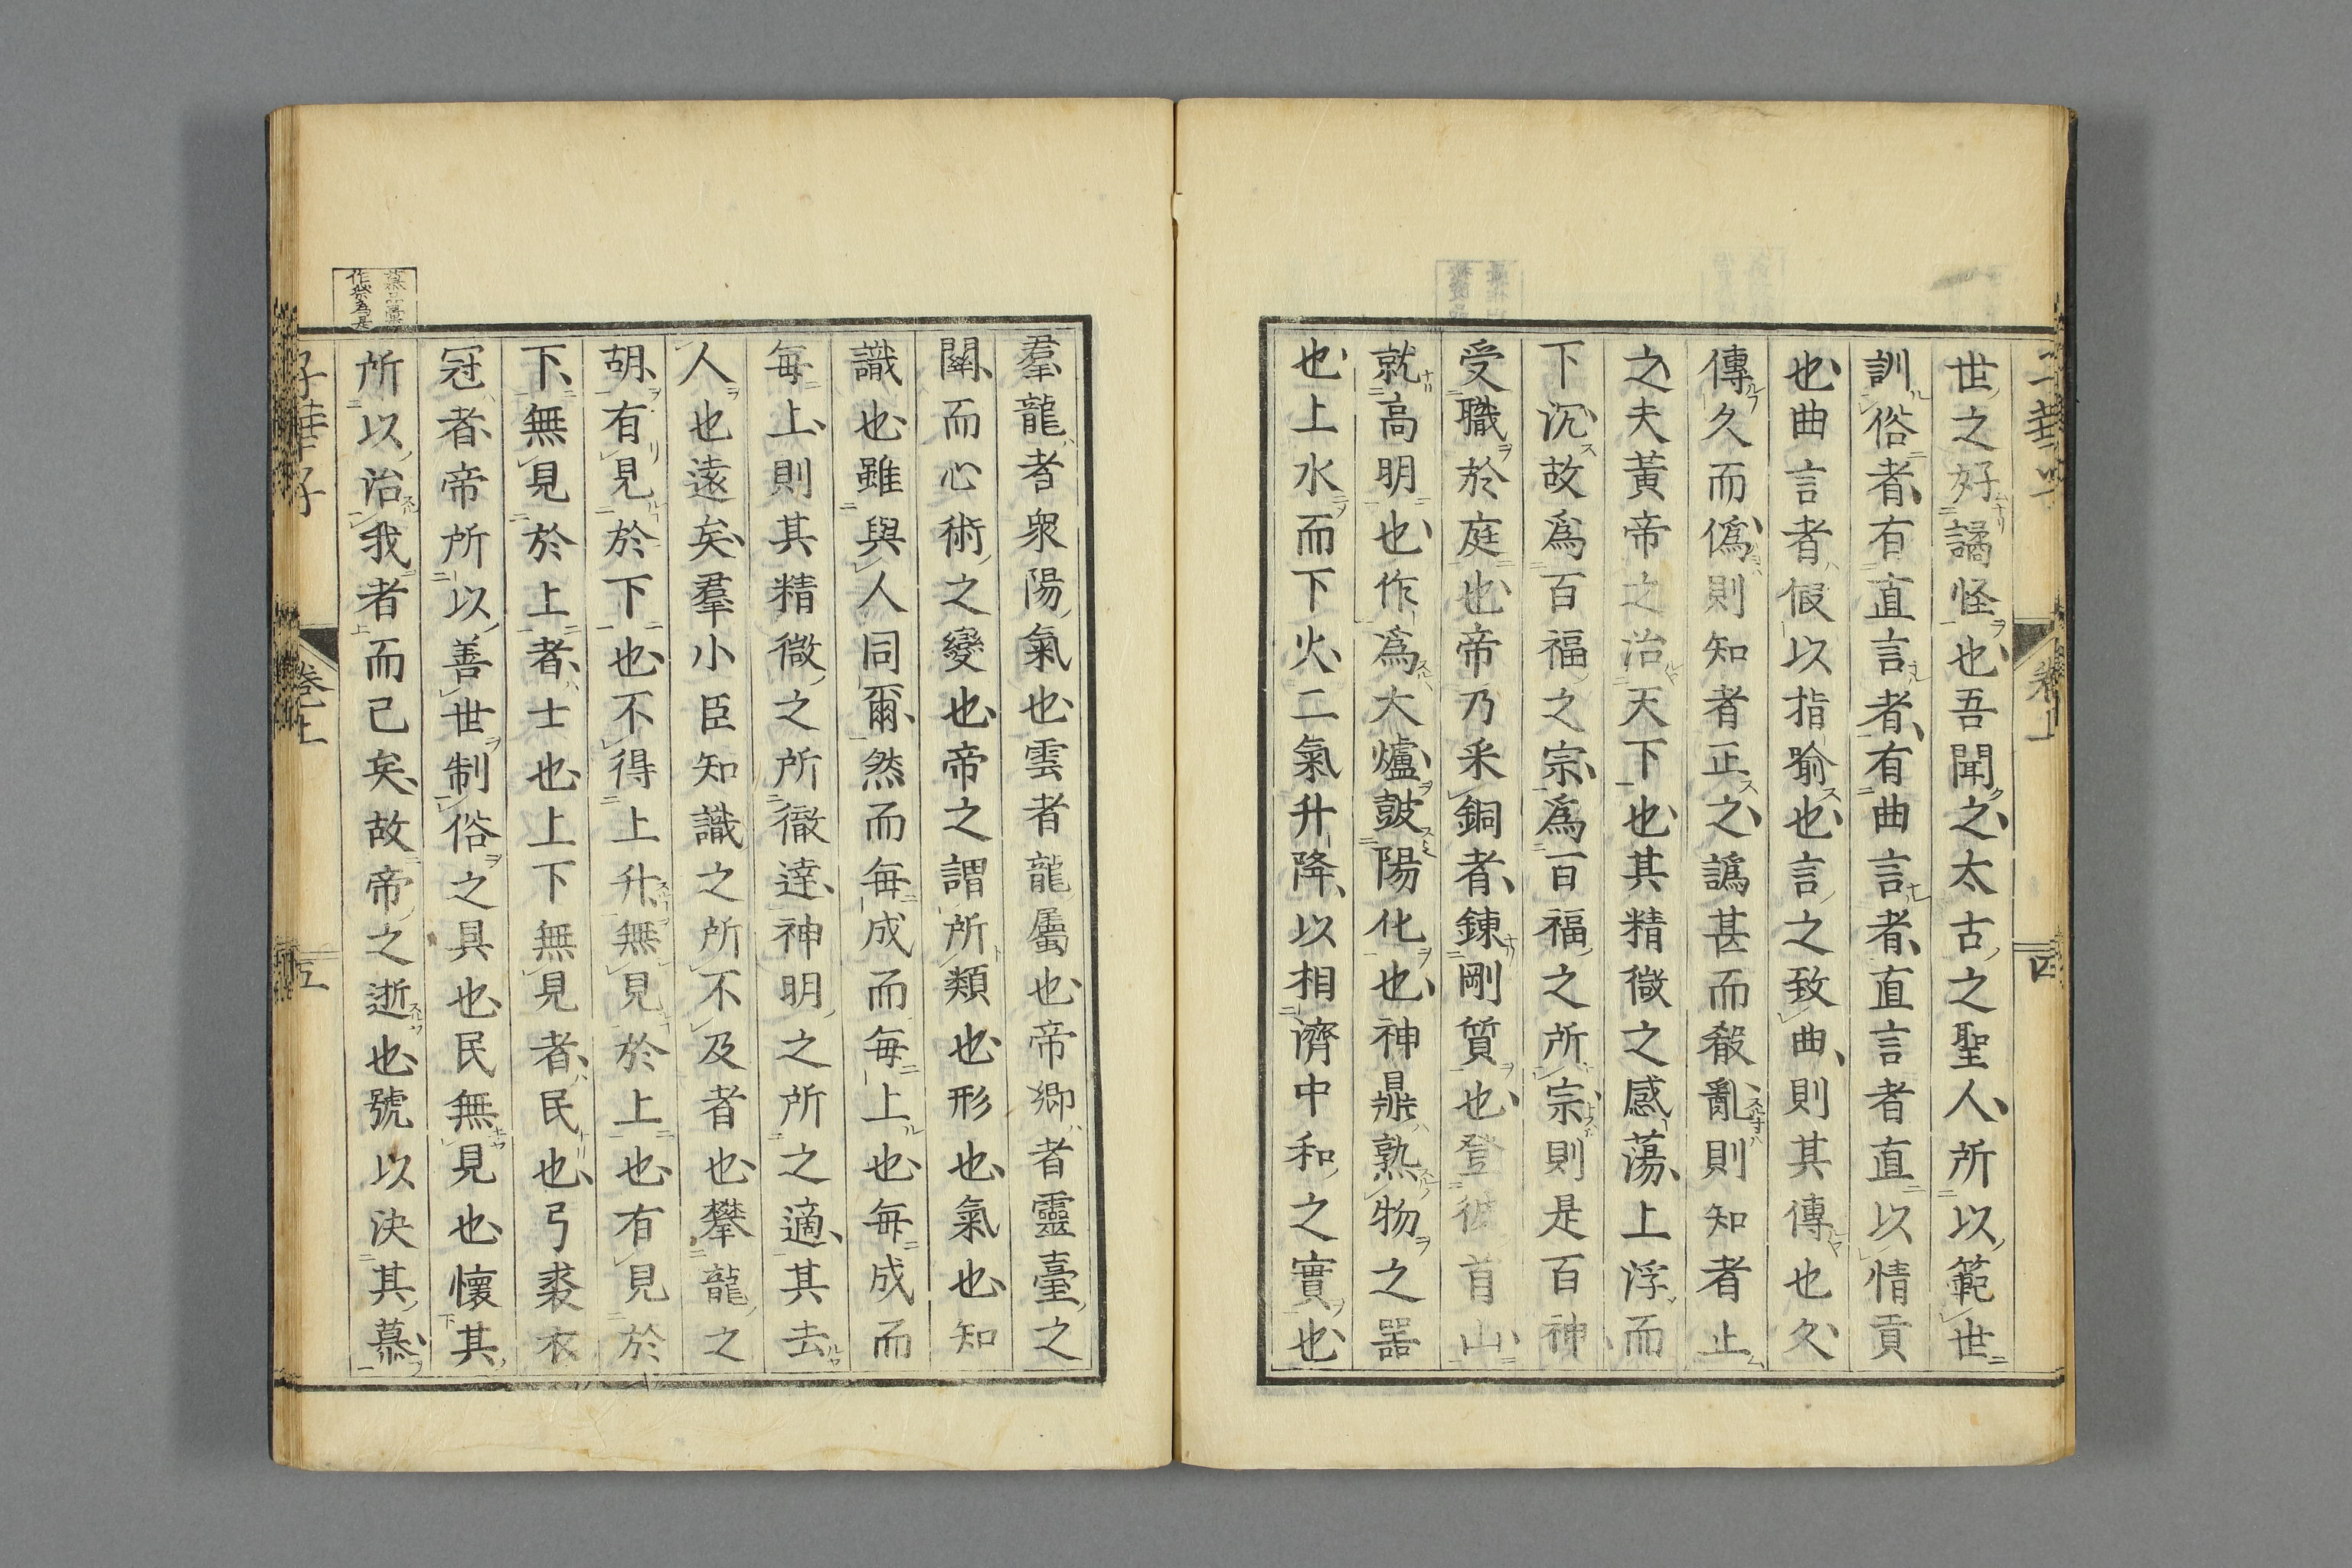 世之好譎怪也吾聞之太古之聖人所以範世
訓俗者有直言者有曲言者直言者直以情貢
也曲言者假以指喻也言之致曲則其傳也久
傳久而僞則知者正之譌甚而殽亂則知者止
之夫黃帝之治天下也其精微之感蕩上浮而
下沉故爲百福之宗爲百福之所宗則是百神
受職於庭也帝乃采銅者鍊剛質也登彼首山
就高明也作爲大爐鼓陽化也神鼎熟物之器
也上水而下火二氣升降以相濟中和之實也
卷上
四
羣龍者衆陽氣也雲者龍屬也帝鄉者靈臺之
關而心術之變也帝之謂所類也形也氣也知
識也雖與人同爾然而每成而每上也每成而
每上則其精微之所徹達神明之所之適其去
人也遠矣羣小臣知識之所不及者也攀龍之
胡有見於下也不得上升無見於上也有見於
下無見於上者士也上下無見者民也弓裘衣
冠者帝所以善世制俗之具也民無見也懷其
所以治我者而已矣故帝之逝也號以決其慕
作祭爲是
子華子
卷上
五